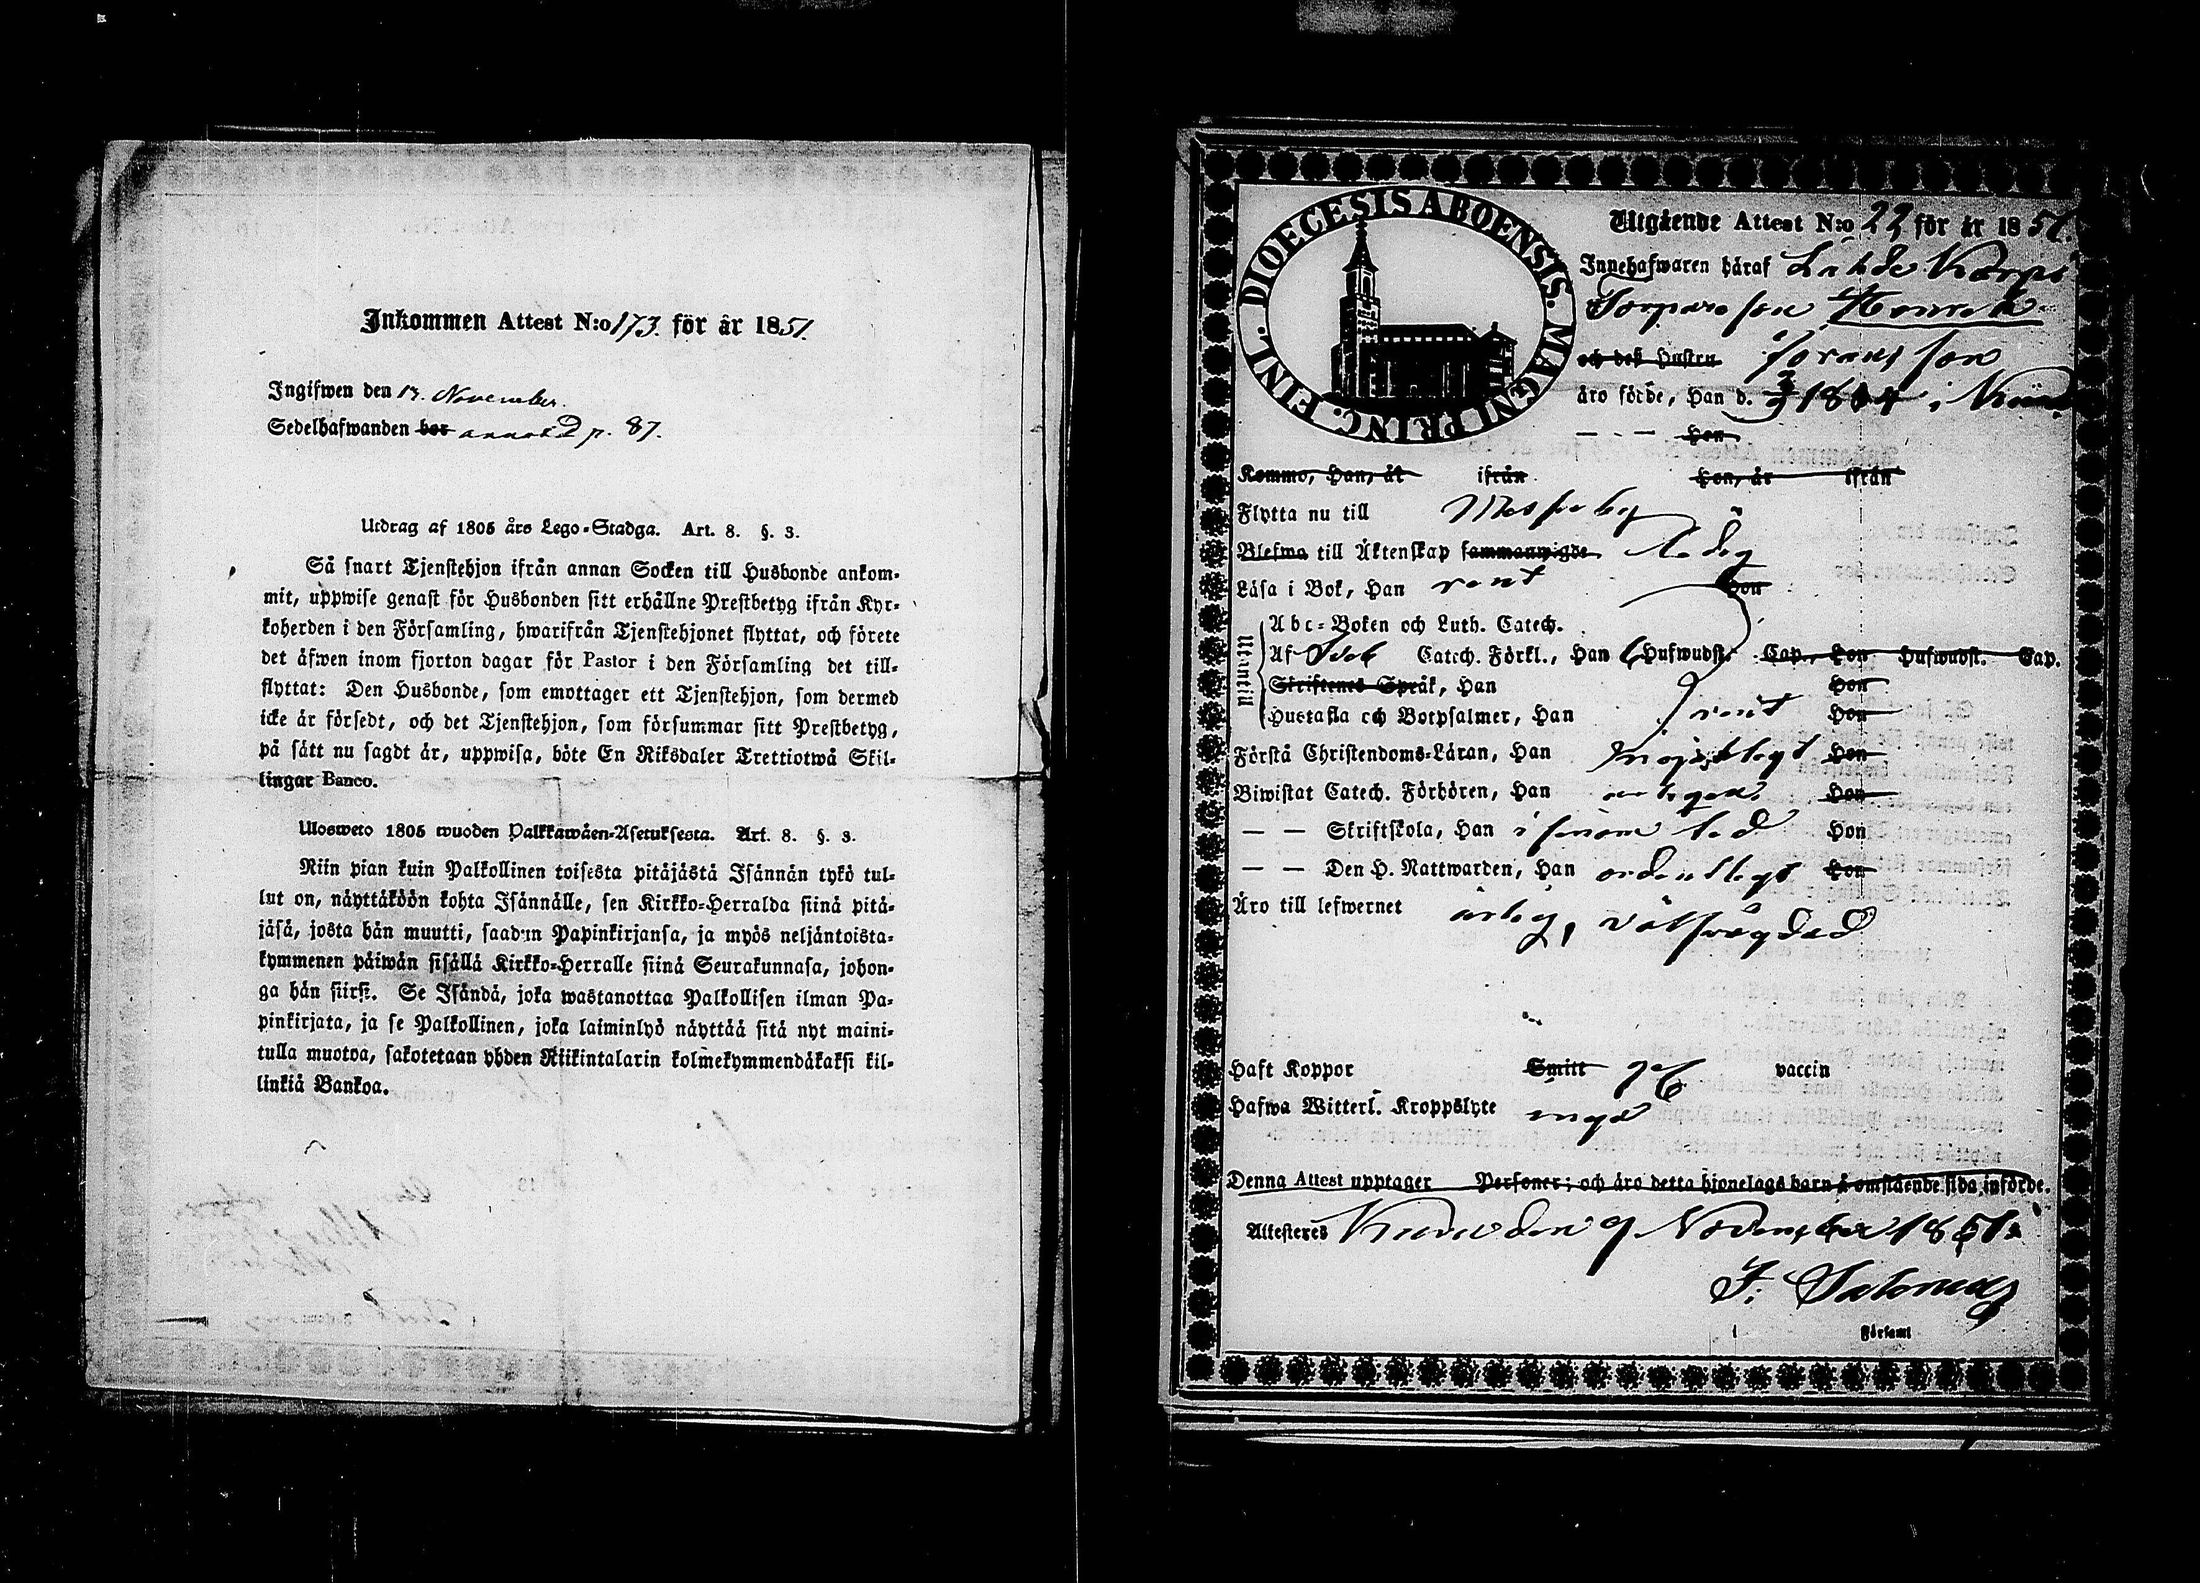 Inkommen Attest N:o 173. för år 1851.
Ingifwen den 13. November.
Sedelhafwanden bor annot. D p. 87.
Utdrag af 1805 års Lego-Stadga. Art. 8. §. 3.
Så snart Tjenstehjon ifrån annan Socken till Husbonde ankom-
mit, uppwise genast för Husbonden sitt erhållne Prestbetyg ifrån Kyr-
koherden i den Församling, hwarifrån Tjenstehjonet flyttat, och förete
det äfwen inom fjorton dagar för Pastor i den Församling det till-
flyttat: Den Husbonde, som emottager ett Tjenstehjon, som dermed
icke är försedt, och det Tjenstehjon, som försummar sitt Prestbetyg,
på sätt nu sagdt är, uppwisa, böte En Riksdaler Trettiotwå Skil-
lingar Banco.
Ulosweto 1805 wuoden Palkkawäen-Asetuksesta. Art. 8. §. 3.
Niin pian kuin Palkollinen toisesta pitäjästä Isännän tykö tul-
lut on, näyttäköön kohta Isännälle, sen Kirkko-Herralda siinä pitä-
jäsä, josta hän muutti, saadun Papinkirjansa, ja myös neljäntoista-
kymmenen päiwän sisällä Kirkko-Herralle siinä Seurakunnasa, johon-
ga hän siirsi. Se Isändä, joka wastanottaa Palkollisen ilman Pa-
pinkirjata, ja se Palkollinen, joka laiminlyö näyttää sitä nyt maini-
tulla muotoa, sakotetaan yhden Riikintalarin kolmekymmendäkaksi kil-
linkiä Bankoa.
DIOECESIS ABOENSIS. MAGNI PRINC. FINL.
Utgående Attest N:o 22 för år 1851.
Innehafwaren häraf
Torpare son Henrik
och deß Hustru
äro födde, Han d. 18 4 i
— — Hon
Komme, Han, åt ifrån Hon, år ifrån
Flytta nu till Messuby
Blefwa till Äktenskap sammanwigde Ledig
Läsa i Bok, Han rent Hon
Utantill
Abc-Boken och Luth. Catech.
Af Catech. Förkl., Han 6 Hufwudst. Cap., Hon Hufwudst. Cap.
Skriftenes Språk, Han Hon
Hustafla och Botpsalmer, Han rent Hon
Förstå Christendoms-Läran, Han nöjaktigt Hon
Biwistat Catech. Förhören, Han Hon
— — Skriftskola, Han i sinom tid Hon
— — Den H. Nattwarden, Han ordentligt Hon
Äro till lefwernet ärlig, välfrägdad
Haft Koppor Smitt vaccin
Hafwa Witterl. Kroppslyte inga
Denna Attest upptager Personer; och äro detta hjonelags barn å omstående sida införde.
Attesteres den 9 November 1851.
Församl